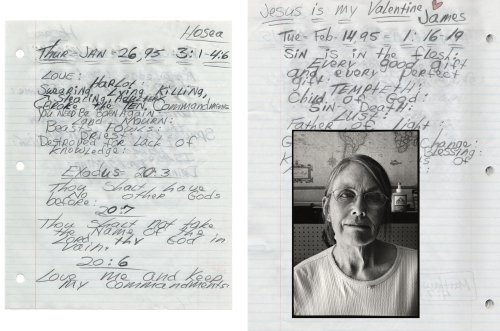 Hosea
Thur-JAN-26,95 3:1-4:6
Love:
HARLOT:
Swearing, Lying, Killing,
Stealing, Adultery,
Broke the Ten Commandments
You Need Be Born Again
Land Mourn:
Beast, Fowls:
Priest:
Destroyed for Lack of
Knowledge:
Exodus-20:3
Thou Shalt have
No other Gods
before:
20:7
Thou Shalt not take
the Name of the
Lord thy God in
vain.
20:6
Love me and Keep
my Commandments:
Jesus is my Valentine
James
Tue-Feb-14,95 1:16-19
Sin is in the flesh:
Every good gift
and every perfect
gift
TEMPTETH:
Child of God:
Sin-Death:
Lust:
Father of light:
change:
Blessing:
of